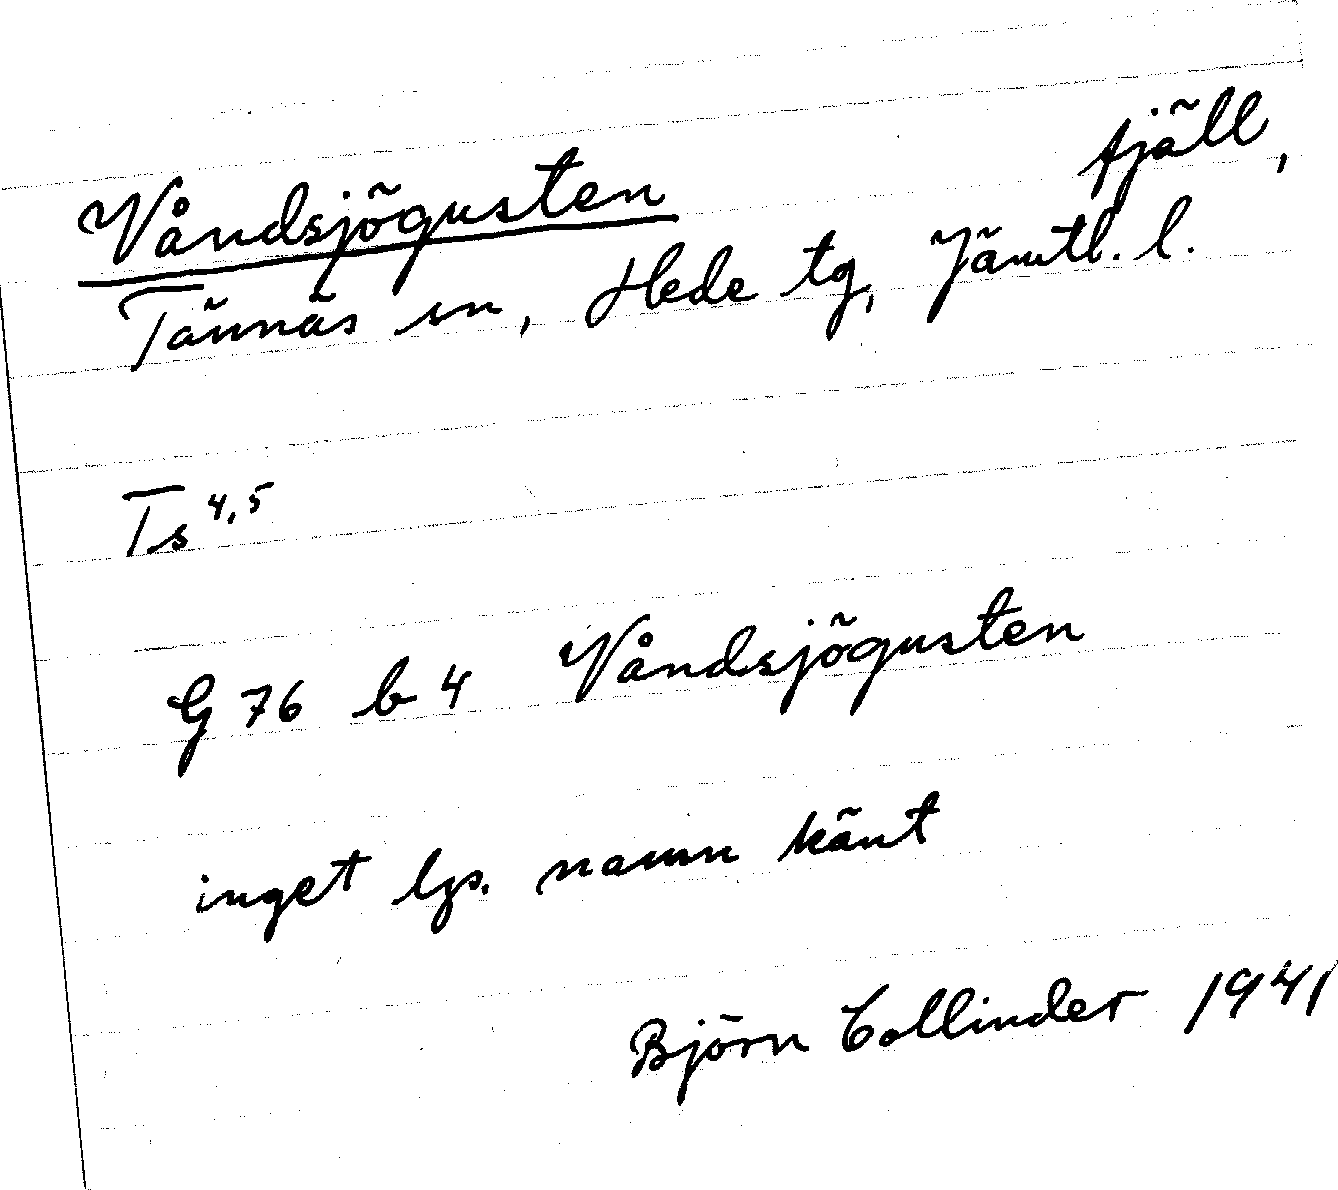 Våndsjögusten fjäll,
Tännäs sn, Hede tg, Jämtl. l.
Ts 4,5
G 76 b 4 Våndsjögusten
inget lps. namn känt
Björn Collinder 1941